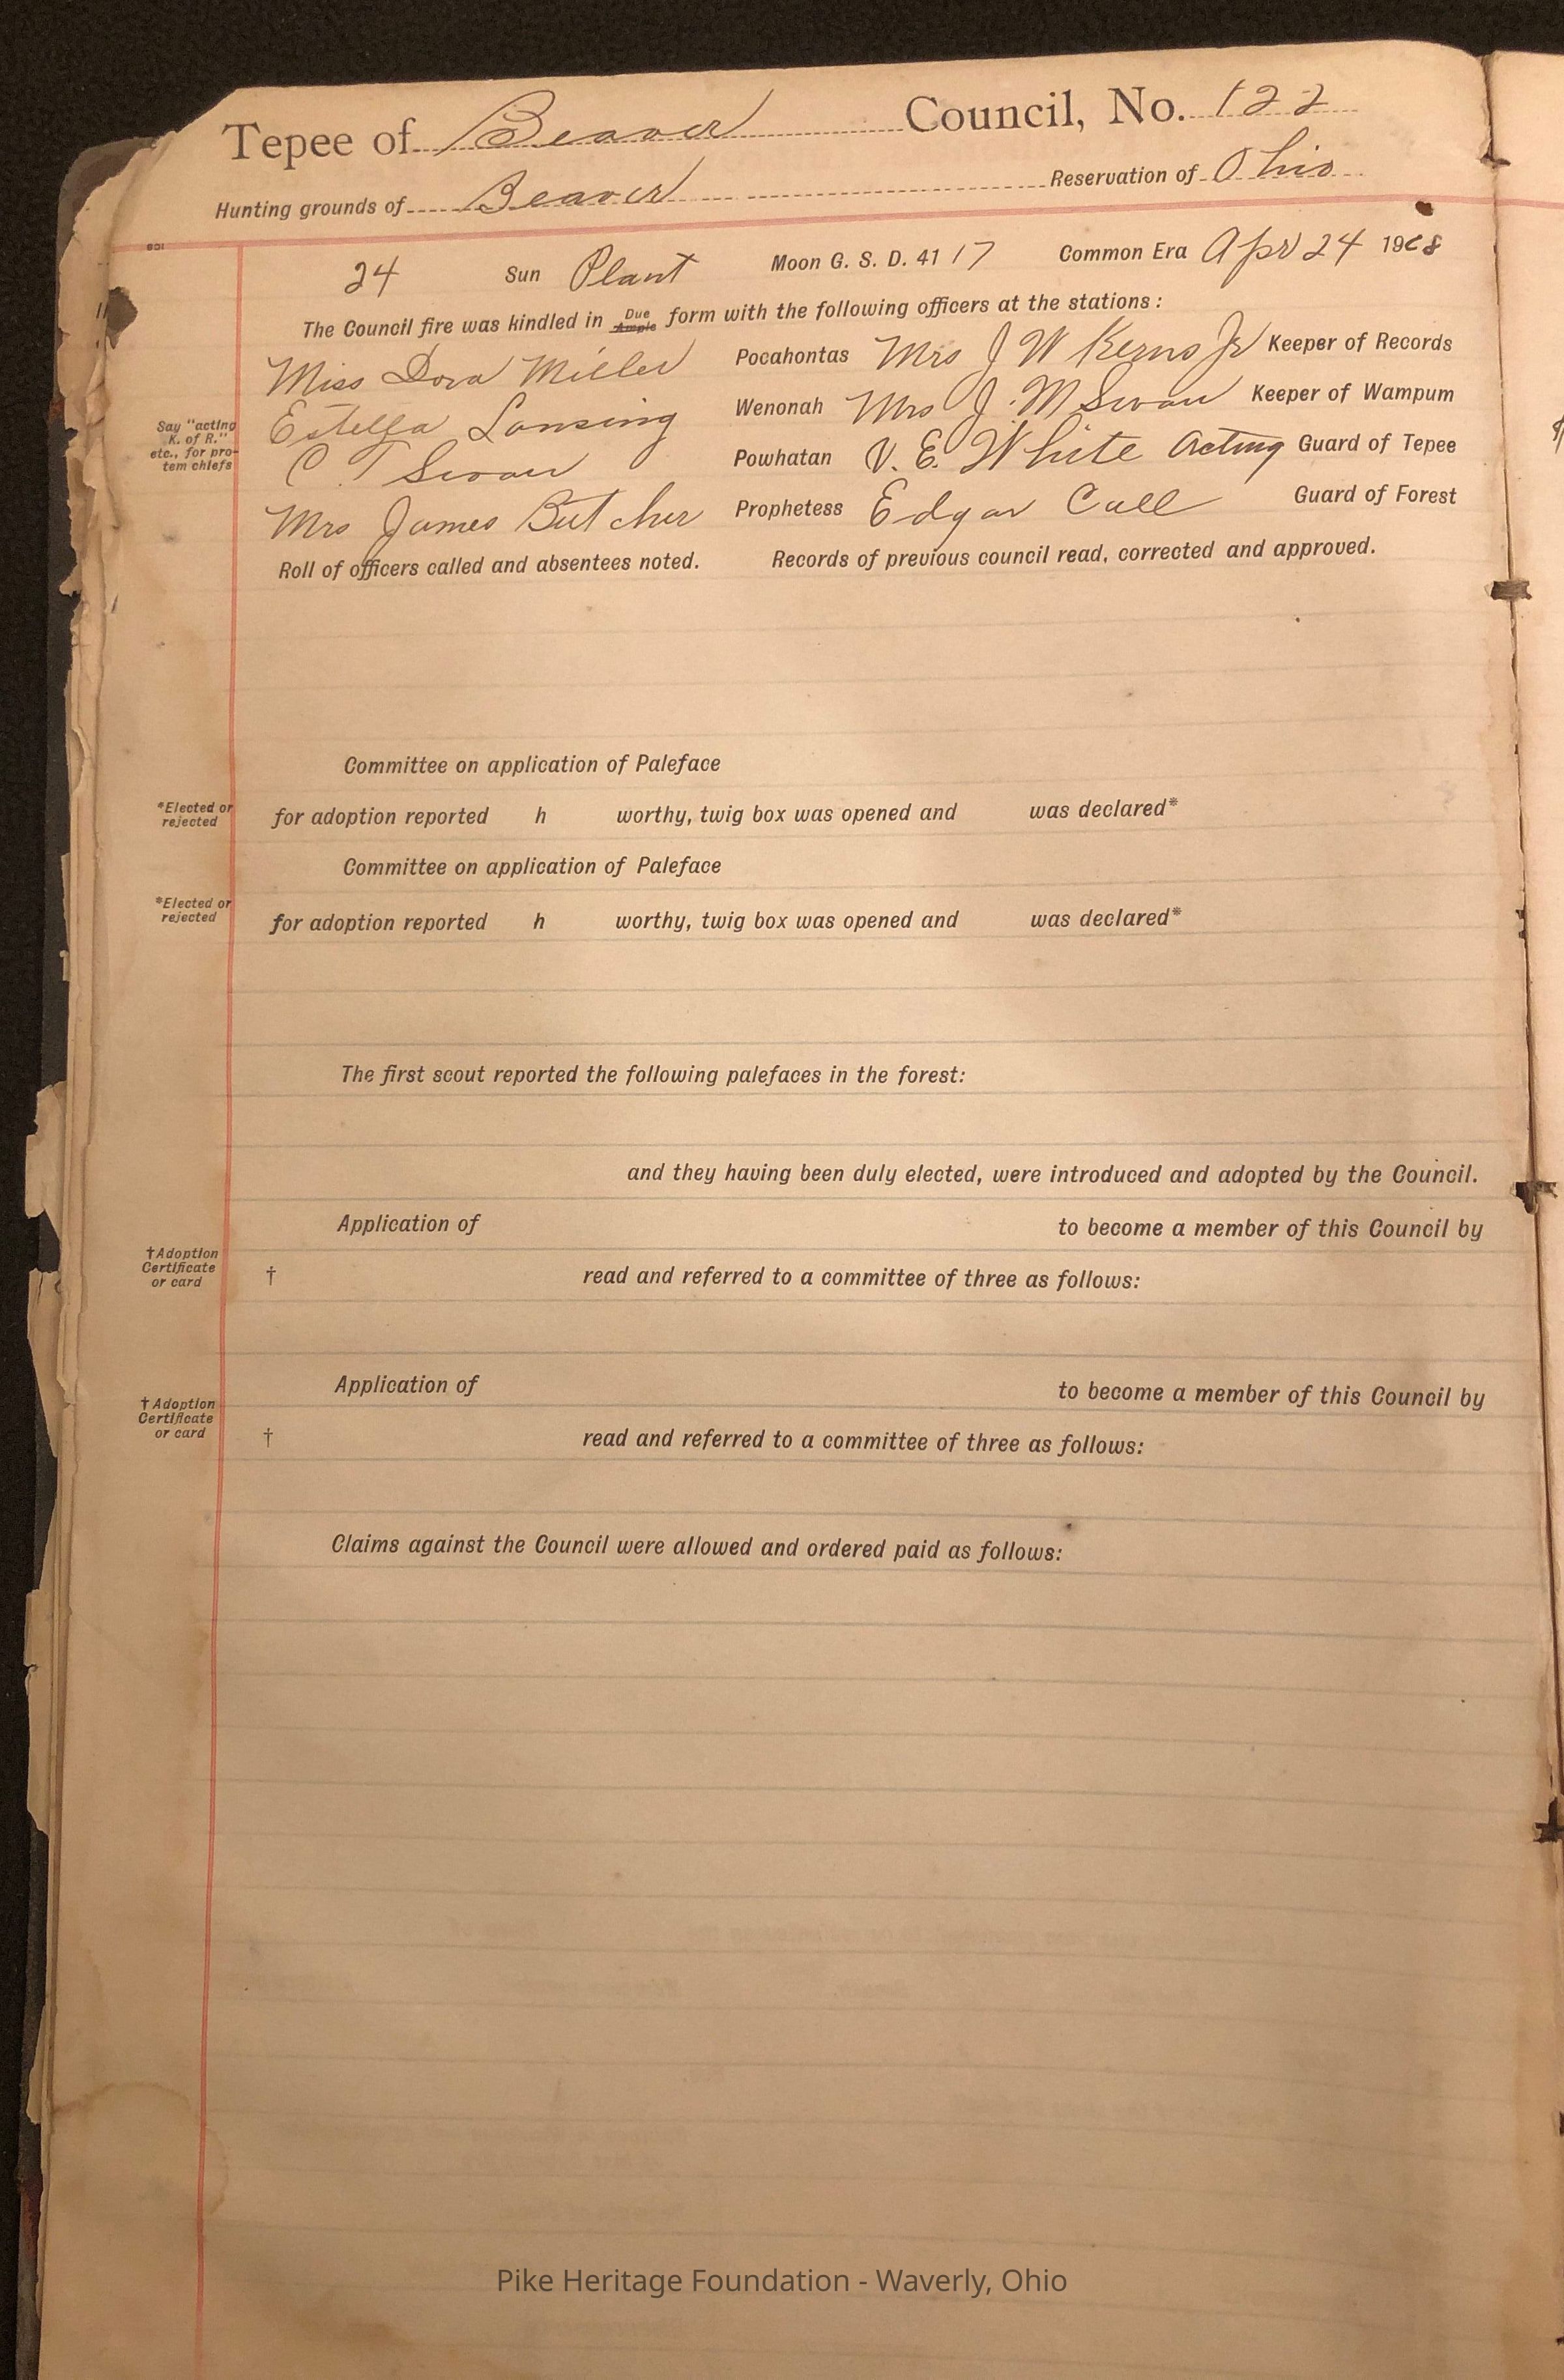 Tepee of Beaver Council, No. 122
Hunting grounds of Beaver Reservation of Ohio
801
24 Sun Plant Moon G. S. D. 41 17 Common Era Apr 24 1908
The Council fire was kindled in Due Ample form with the following officers at the stations:
Miss Dora Miller Pocahontas Mrs J W Kerns Jr Keeper of Records
Estella Lansing Wenonah Mrs J. M Swan Keeper of Wampum
Say "acting
K. of R."
etc., for pro-
tem chiefs
C. T Swan Powhatan V. E. White Acting Guard of Tepee
Mrs James Butcher Prophetess Edgar Call Guard of Forest
Roll of officers called and absentees noted. Records of previous council read, corrected and approved.
Committee on application of Paleface
*Elected or
rejected
for adoption reported h worthy, twig box was opened and was declared*
Committee on application of Paleface
*Elected or
rejected
for adoption reported h worthy, twig box was opened and was declared*
The first scout reported the following palefaces in the forest:
and they having been duly elected, were introduced and adopted by the Council.
Application of to become a member of this Council by
†Adoption
Certificate
or card
† read and referred to a committee of three as follows:
Application of to become a member of this Council by
†Adoption
Certificate
or card
† read and referred to a committee of three as follows:
Claims against the Council were allowed and ordered paid as follows:
Pike Heritage Foundation - Waverly, Ohio